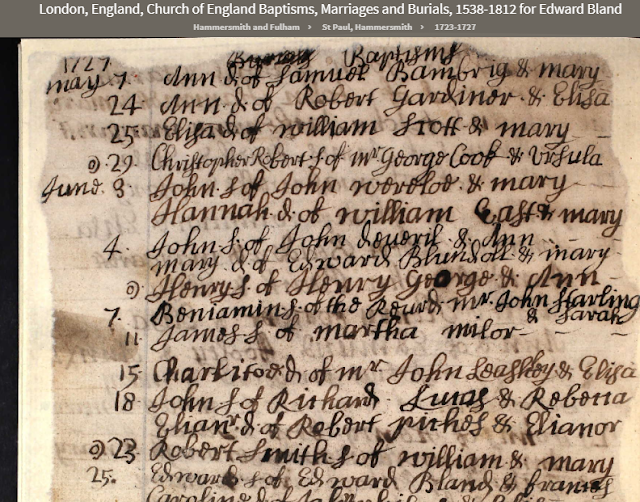 London, England, Church of England Baptisms, Marriages and Burials, 1538-1812 for Edward Bland
Hammersmith and Fulham > St Paul, Hammersmith > 1723-1727
1727 Baptisms
may 7. Ann d. of Samuel Bambrig & mary
24 Ann d. of Robert Gardiner & Elisa
25 Elisa d. of william Scott & mary
29. Christopher Robert s. of mr George Cook & Ursula
June. 3. John s. of John & mary
Hannah d. of william East & mary
4. John s. of John deveril & Ann
mary d. of Edward Blundell & mary
Henry s. of Henry George & Ann
7. Beniamin s. of the Revrd mr John Starling
& Sarah
11 James s. of martha milor
15 d. of mr John Leashley & Elisa
18 John s. of Richard Lucas & Rebecca
d. of Robert & Elianor
23 Robert Smith s. of william & mary
25. Edward s. of Edward Bland & frances
Caroline d. of